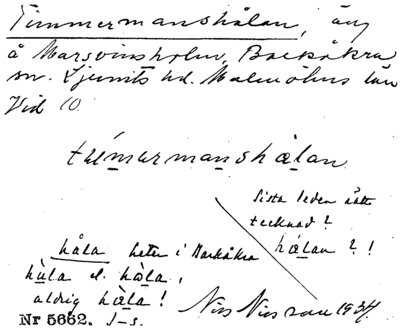 Timmermanshålan, äng
å Marsvinsholm, Balkåkra
sn. Ljunits hd. Malmöhus län
Vid 10.
hǽlan.
Sista leden rätt
tecknad?
hǽlan ?!
håla heter i Balkåkra
hùla el. hàla,
aldrig hæ̀la!
Nils Nilsson 1934.
Nr 5662. J-s.